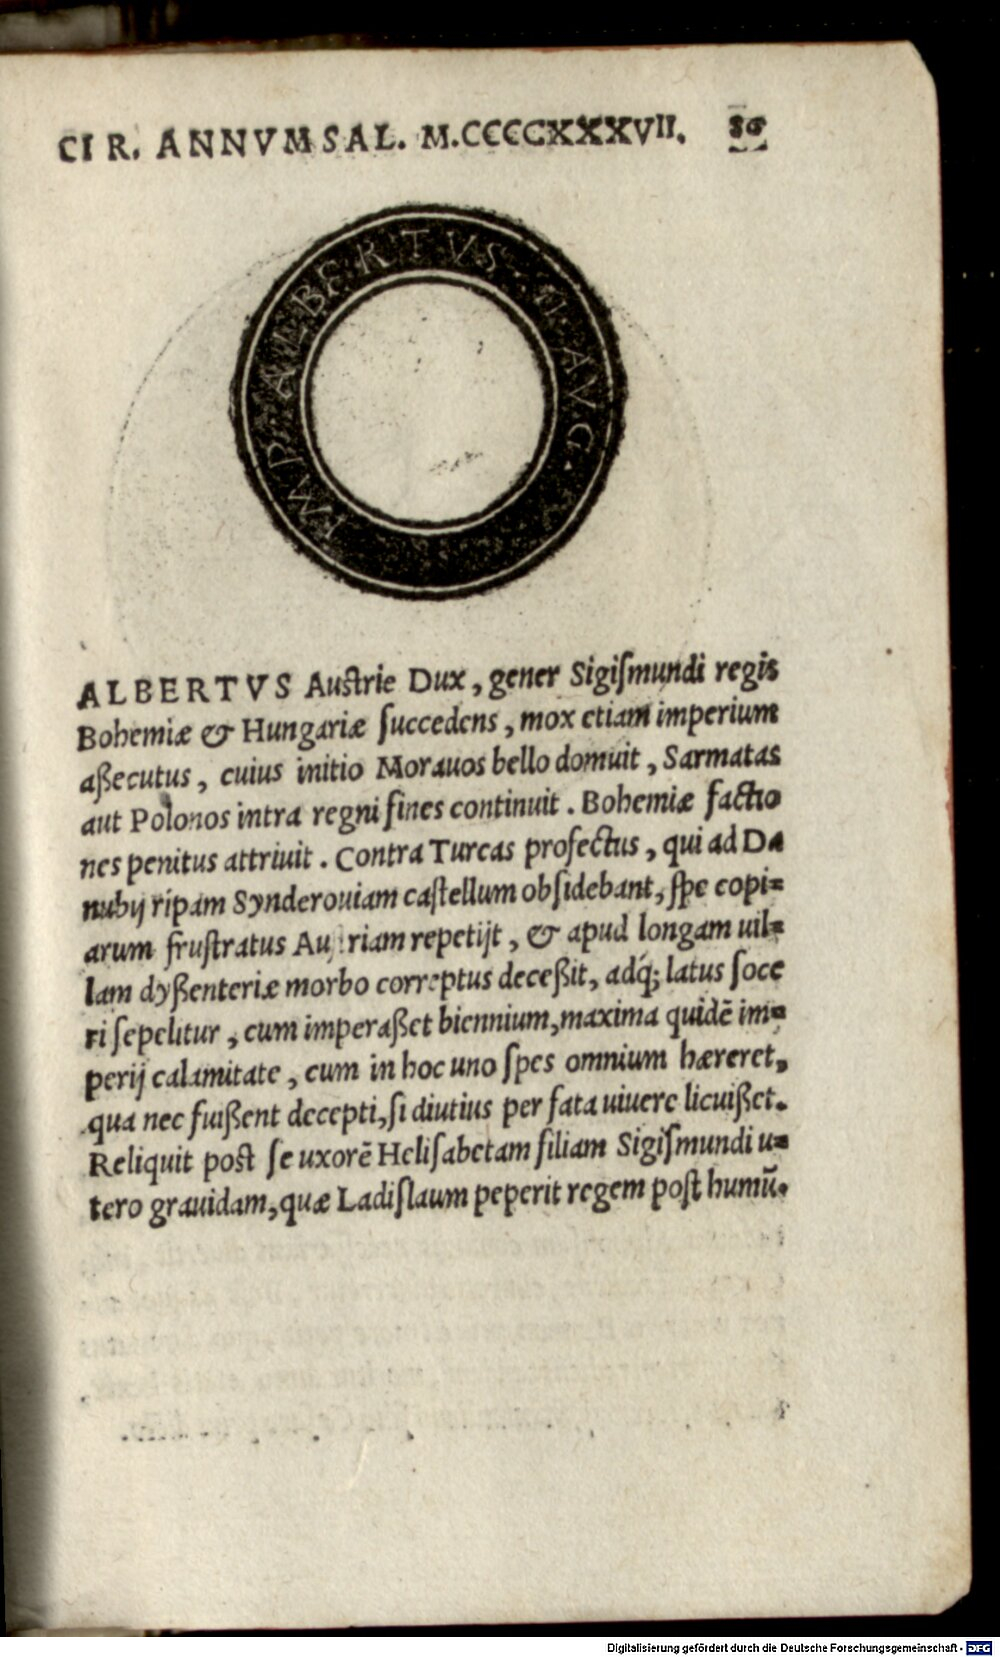 CIR. ANNVM SAL. M.CCCCXXXVII.
IMP. ALBERTVS. II. AVG.
ALBERTVS Austrie Dux, gener Sigiſmundi regis
Bohemiæ & Hungariæ ſuccedens, mox etiam imperium
aßecutus, cuius initio Morauos bello domuit, Sarmatas
aut Polonos intra regni fines continuit. Bohemiæ factio
nes penitus attriuit. Contra Turcas profectus, qui ad Da
nubij ripam Synderouiam caſtellum obſidebant, ſpe copi=
arum fruſtratus Auſtriam repetijt, & apud longam uil=
lam dyßenteriæ morbo correptus deceßit, adq́; latus ſoce
ri ſepelitur, cum imperaßet biennium, maxima quidē im=
perij calamitate, cum in hoc uno ſpes omnium hæreret,
qua nec fuißent decepti, ſi diutius per fata uiuere licuißet.
Reliquit poſt ſe uxorē Heliſabetam filiam Sigiſmundi u=
tero grauidam, quæ Ladiſlaum peperit regem poſt humū.
Digitalisierung gefördert durch die Deutsche Forschungsgemeinschaft - DFG